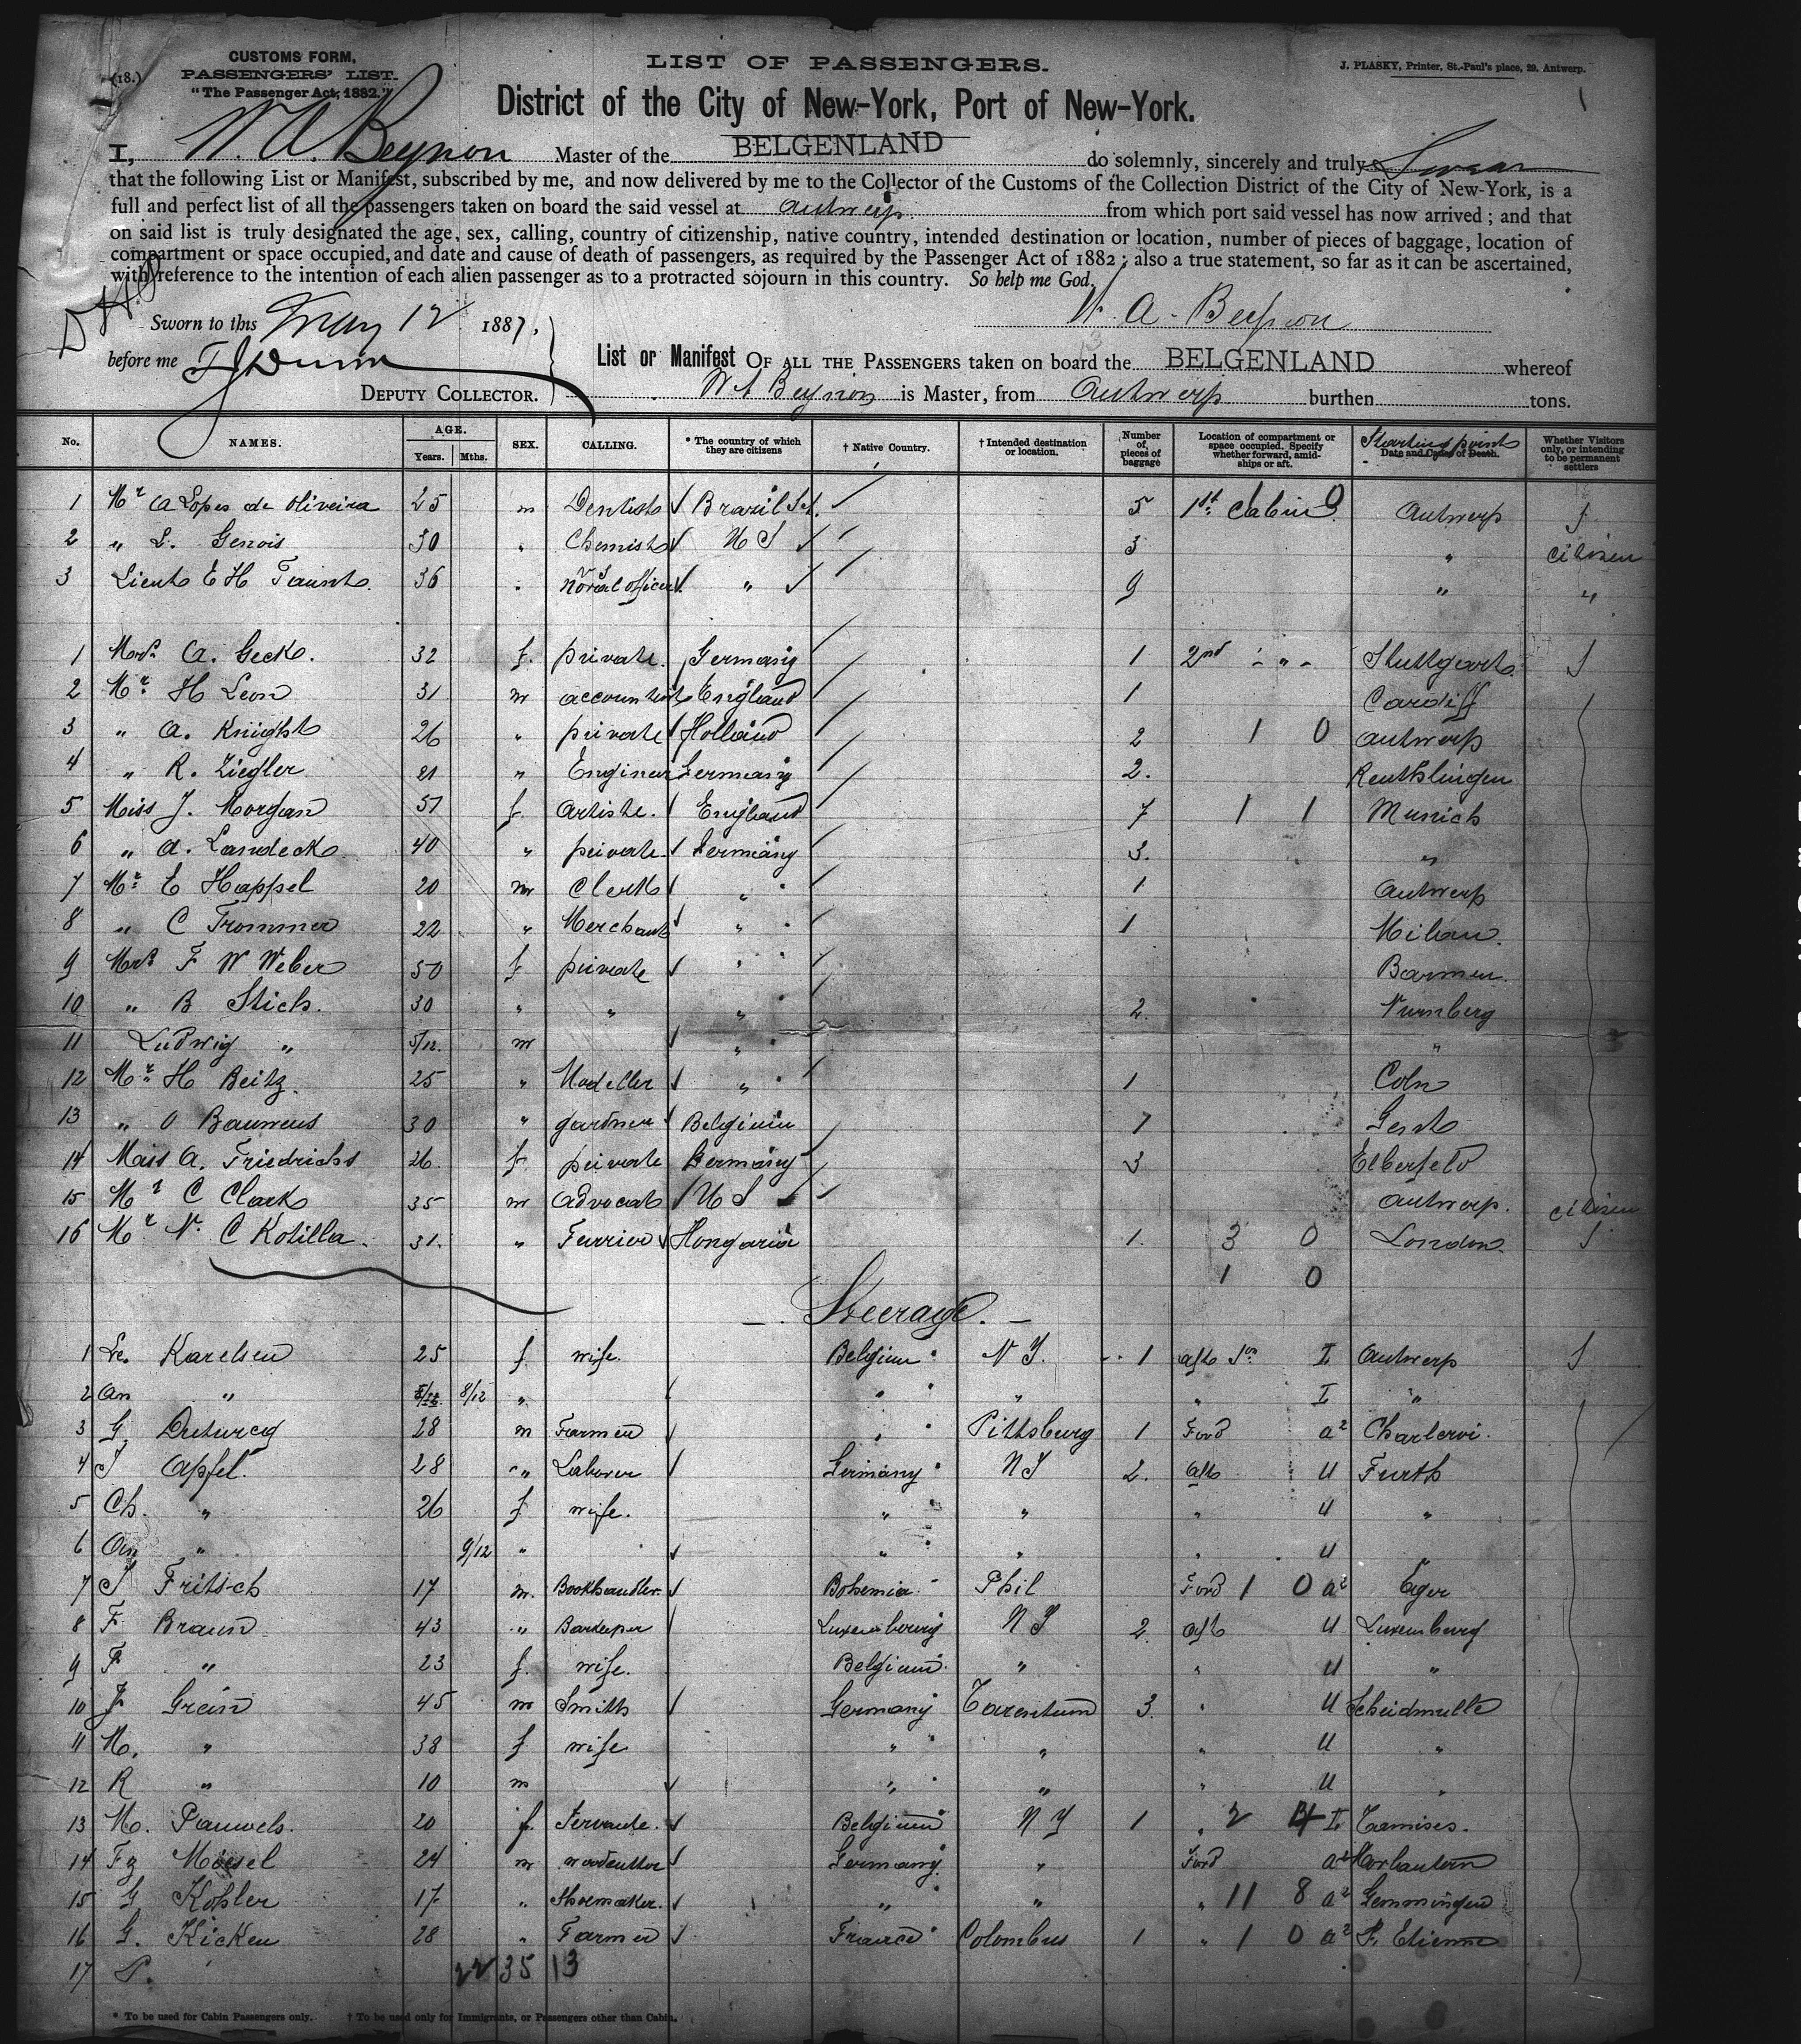 (18.)
CUSTOMS FORM,
PASSENGERS' LIST.
"The Passenger Act, 1882."
LIST OF PASSENGERS.
J. PLASKY, Printer, St.-Paul's place, 29. Antwerp.
District of the City of New-York, Port of New-York.
I, W. A. Beynon Master of the BELGENLAND do solemnly, sincerely and truly Swear
that the following List or Manifest, subscribed by me, and now delivered by me to the Collector of the Customs of the Collection District of the City of New-York, is a
full and perfect list of all the passengers taken on board the said vessel at Antwerp from which port said vessel has now arrived ; and that
on said list is truly designated the age, sex, calling, country of citizenship, native country, intended destination or location, number of pieces of baggage, location of
compartment or space occupied, and date and cause of death of passengers, as required by the Passenger Act of 1882 ; also a true statement, so far as it can be ascertained,
with reference to the intention of each alien passenger as to a protracted sojourn in this country. So help me God.
Sworn to this May 12 1887,
W. A. Beynon
before me
DEPUTY COLLECTOR.
List or Manifest OF ALL THE PASSENGERS taken on board the BELGENLAND whereof
W A Beynon is Master, from Antwerp burthen tons.
No. NAMES. AGE. Years. Mths. SEX. CALLING. * The country of which they are citizens † Native Country. † Intended destination or location. Number of pieces of baggage Location of compartment or space occupied. Specify whether forward, amid-ships or aft. Starting point Date and Cause of Death. Whether Visitors only, or intending to be permanent settlers
1 Mr A Lopes de Oliveira 25 m Dentist Brazil 5 1st Cabin Antwerp
2 " L. Genois 30 " Chemist U S 3 " citizen
3 Lieut E H Taunt 36 " Naval officer " 9 " "
1 Mrs A. Geck. 32 f. private Germany 1 2nd - " - Stuttgart
2 Mr H Leon 31 m accountant England 1 Cardiff
3 " A. Knight 26 " private Holland 2 1 0 Antwerp
4 " R. Ziegler 21 " Engineer Germany 2. Reuthlingen
5 Miss J. Morgan 51 f Artiste. England 7 1 1 Munich
6 " A. Landeck 40 " private Germany 3. "
7 Mr E Happel 20 m Clerk " 1 Antwerp
8 " C Trommer 22 " Merchant " 1 Milan.
9 Mrs F W Weber 50 f private " Barmen
10 " B Stich. 30 " " " 2. Nurnberg
11 Ludwig " 5/12. m " "
12 Mr H Beitz. 25 " Modeller " 1 Coln
13 " O Bauwens 30 " gardner Belgium 1 Gent
14 Miss A. Friedrichs 26 f private Germany 3 Elberfeld
15 Mr C Clark 35 m Advocat U S Antwerp. citizen
16 Mr N. C Kotilla 31. " Furrier Hongaria 1. 3 0 London.
1 0
Steerage.
1 Le. Karelsen 25 f wife. Belgium N Y. 1 aft I Antwerp
2 An " 8/12 " " " " I "
3 G. Duturcq 28 m Farmer " Pittsburg 1 Ford a2 Charleroi.
4 J Apfel. 28 " Laborer Germany N Y 2. aft U Furth
5 Ch. " 26 f wife. " " " U "
6 An " 9/12 " " " " U
7 J Fritsch 17 m. Bookhandler Bohemia Phil Ford 1 0 a2 Eger
8 F Braun 43 " Barkeeper Luxembourg N Y 2. aft U Luxemburg
9 F " 23 f. wife. Belgium " " U "
10 J. Grein 45 m Smith Germany Tarentum 3. " U Scheidmulle
11 M. " 38 f wife " " " U "
12 R " 10 m " " " U "
13 M. Pauwels. 20 f. Servante. Belgium N Y 1 " 2 I Tamises.
14 Fz Moesel 24 m woodcutter Germany " Ford a2 Morlautern
15 G Kohler 17 " Shoemaker. " " " 11 8 a2 Gemmingen
16 G. Kicken 28 " Farmer France Colombus 1 " 1 0 a2 St. Etienne
17 P. 22 35 13
* To be used for Cabin Passengers only. † To be used only for Immigrants, or Passengers other than Cabin.